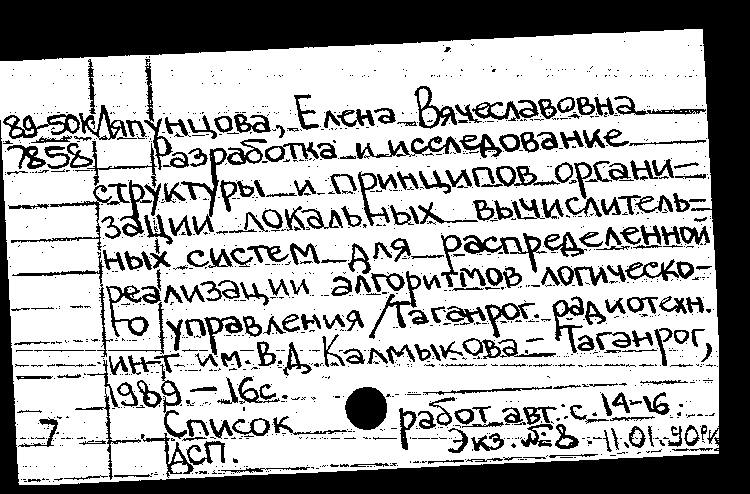 89-50к Ляпунцова, Елена Вячеславовна
7858 Разработка и исследование
структуры и принципов органи-
зации локальных вычислитель-
ных систем для распределенной
реализации алгоритмов логическо-
го управления / Таганрог. радиотехн.
ин-т им. В.Д. Калмыкова. - Таганрог,
1989. - 16с.
Список работ авт.: с. 14-16.
7 ДСП. Экз. №8. 11.01.90